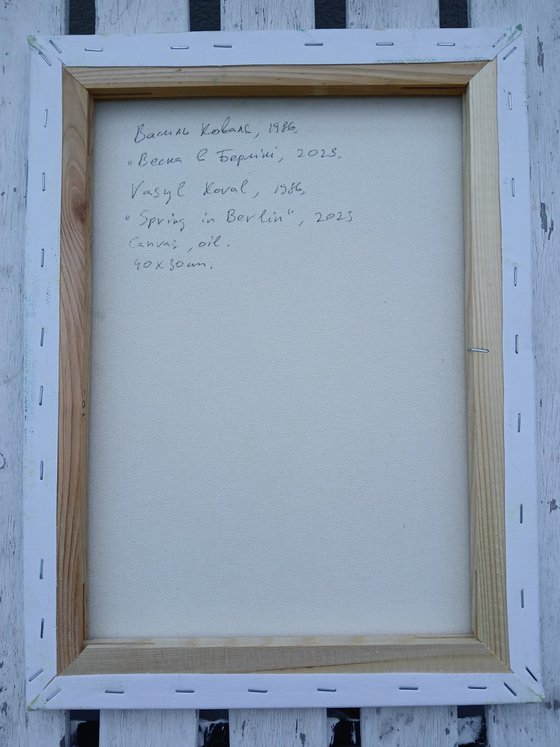 Василь Коваль, 1986.
"Весна в Берліні, 2023.
Vasyl Koval, 1986,
"Spring in Berlin", 2023
Canvas, oil.
40x30 cm.